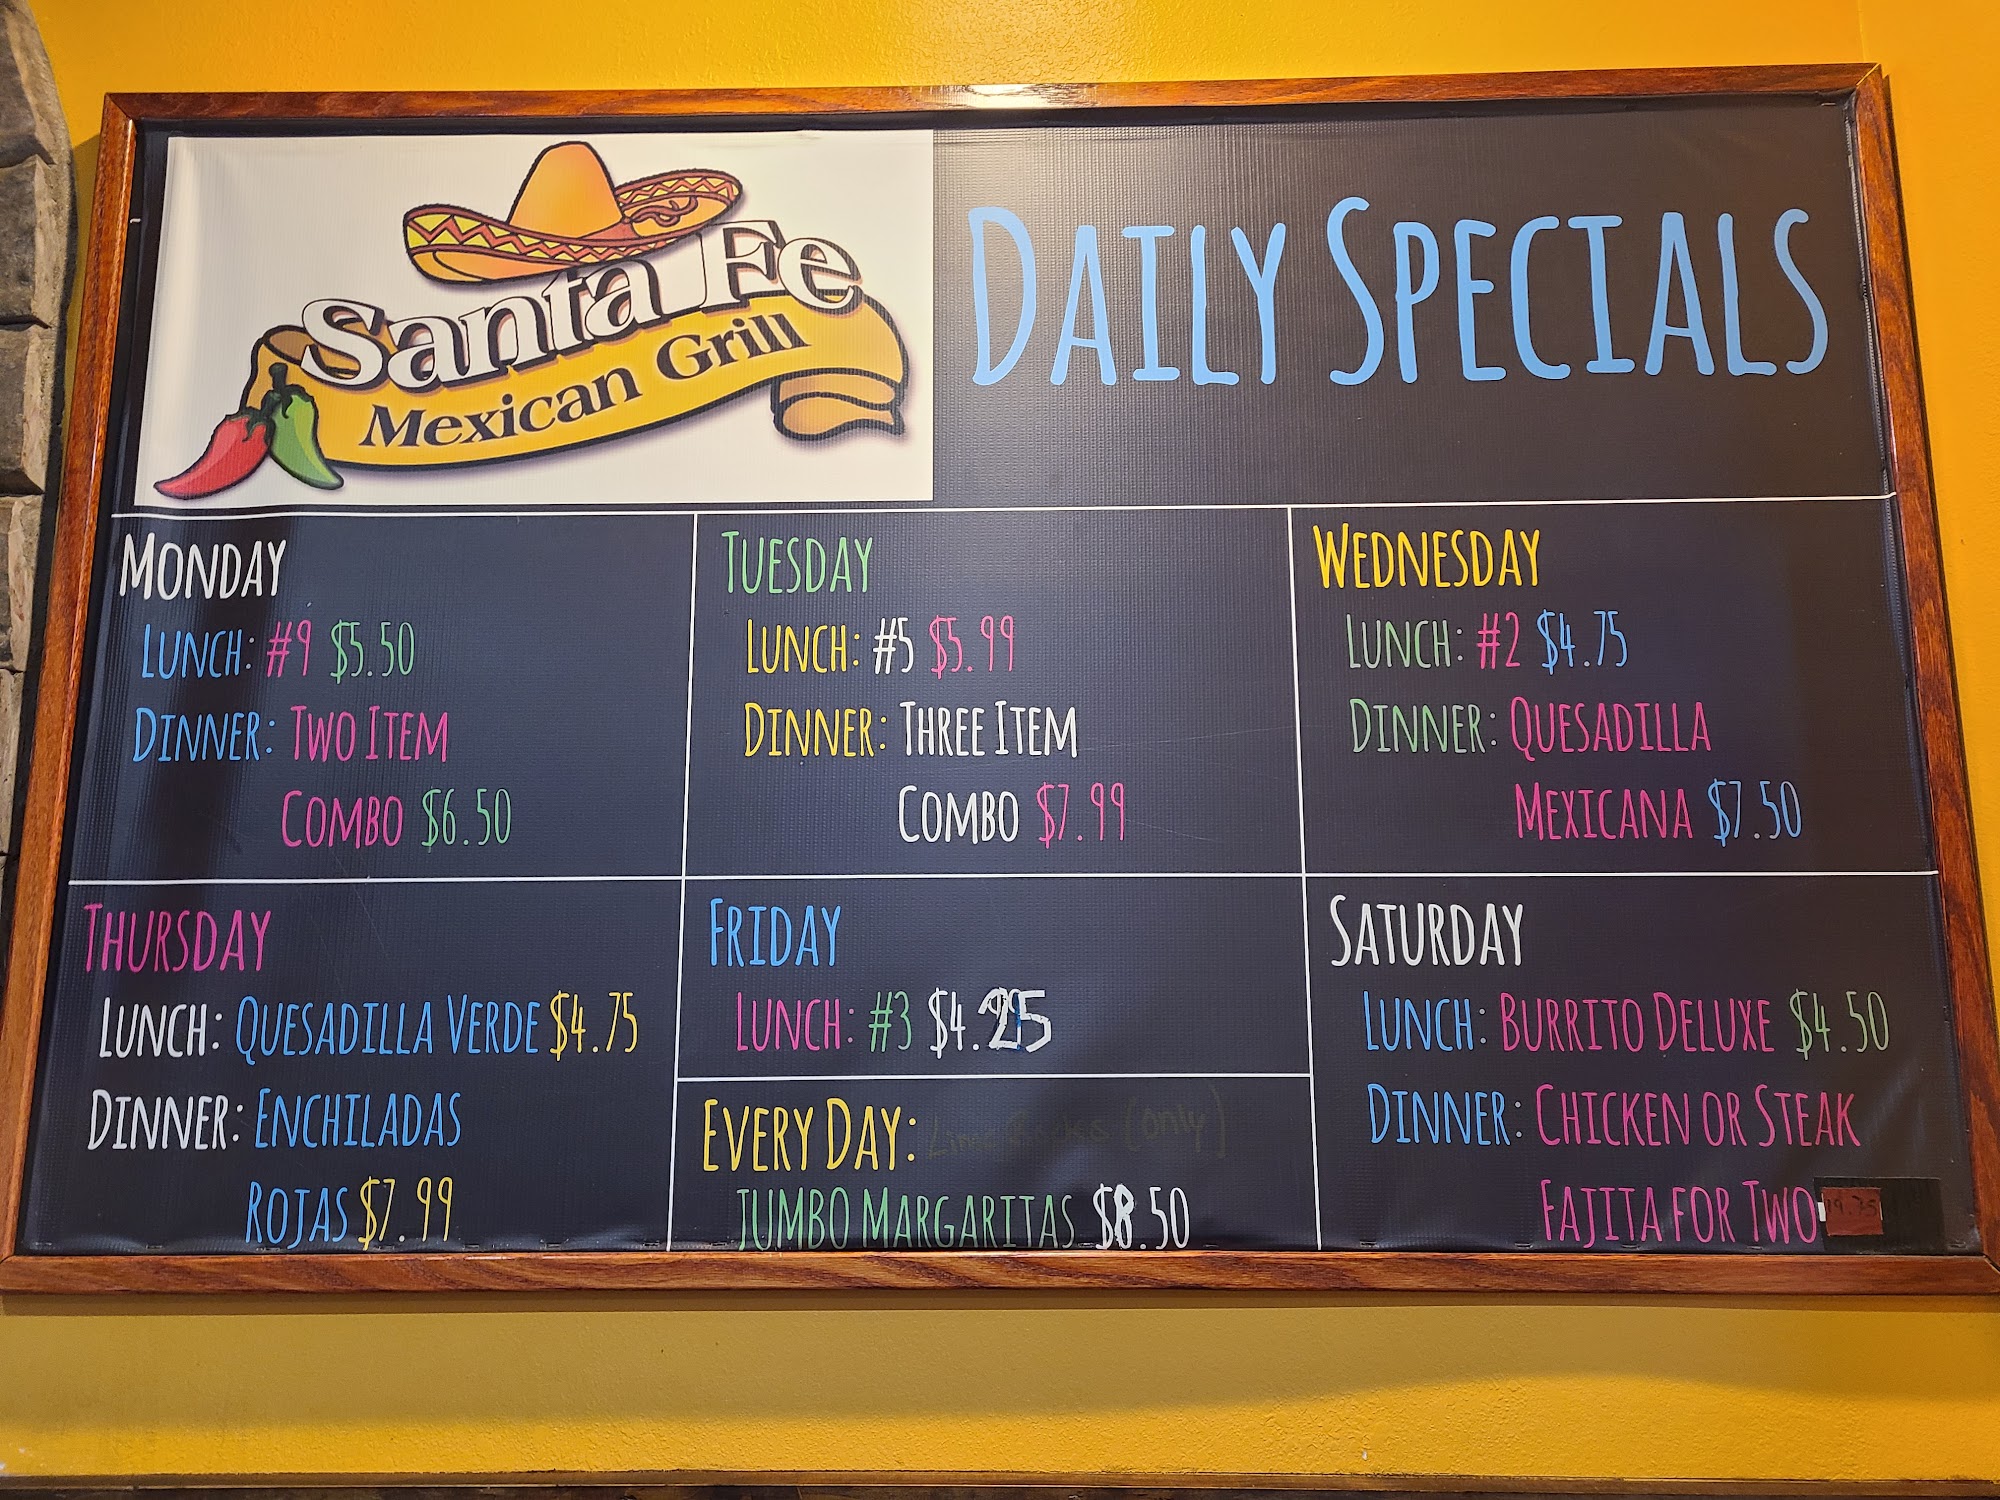 Santa Fe
Mexican Grill
DAILY SPECIALS
MONDAY
LUNCH: #9 $5.50
DINNER: TWO ITEM
COMBO $6.50
TUESDAY
LUNCH: #5 $5.99
DINNER: THREE ITEM
COMBO $7.99
WEDNESDAY
LUNCH: #2 $4.75
DINNER: QUESADILLA
MEXICANA $7.50
THURSDAY
LUNCH: QUESADILLA VERDE $4.75
DINNER: ENCHILADAS
ROJAS $7.99
FRIDAY
LUNCH: #3 $4.25
EVERY DAY: (only)
JUMBO MARGARITAS $8.50
SATURDAY
LUNCH: BURRITO DELUXE $4.50
DINNER: CHICKEN OR STEAK
FAJITA FOR TWO 19.75